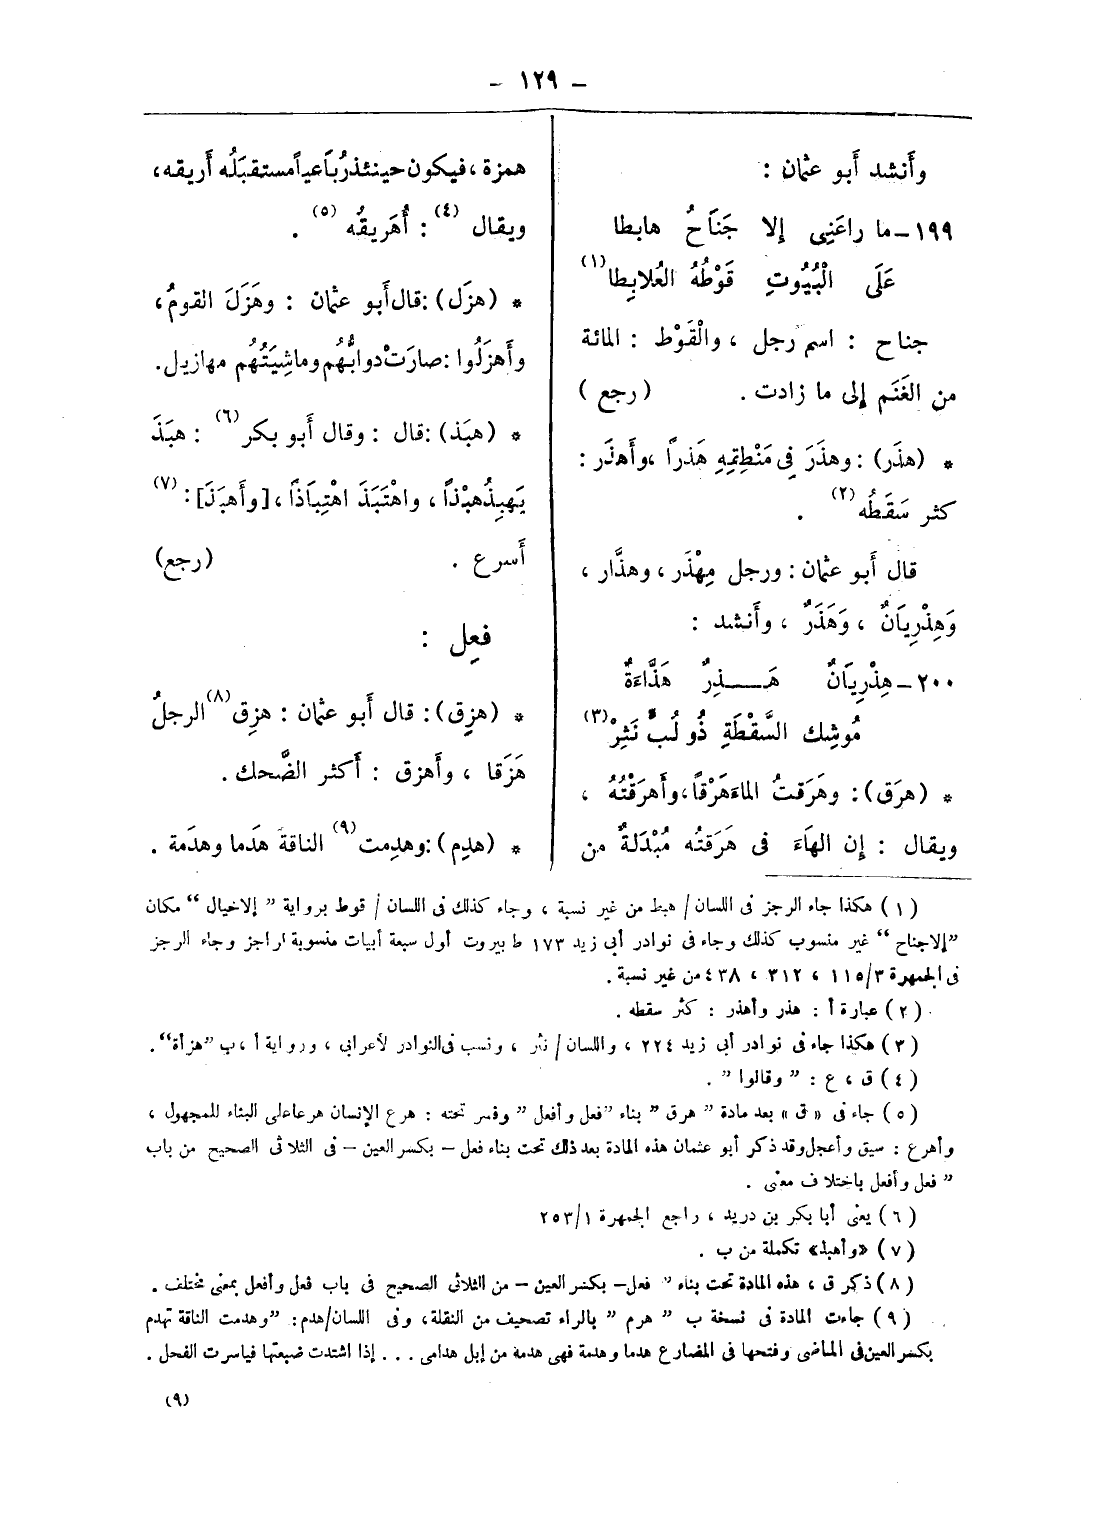 – ١٢٩ –
وأَنشد أَبو عثمان :
١٩٩ – ما راعَنِى إِلا جَنَاحُ هابطا
عَلَى الْبُيُوتِ قَوْطَهُ العُلابِطا (١)
جناح : اسم رجل ، والْقَوْط : المائة
من الغَنَم إِلى ما زادت . ( رجع )
* (هذَر) : وهذَرَ فِى مَنْطِقِهِ هَذراً ، وأَهذَر :
كثر سَقَطُه (٢) .
قال أَبو عثمان : ورجل مِهْذَر ، وهذَّار ،
وَهِذْرِيَانٌ ، وَهَذَرٌ ، وأَنشد :
٢٠٠ – هِذْرِيَانٌ هَــــذِرٌ هَذَّاءَةٌ
مُوشِك السَّقْطَةِ ذُو لُبٍّ نَثِرْ (٣)
* (هرَق) : وهَرَقتُ الماءَ هَرْقاً ، وأَهرَقْتُهُ ،
ويقال : إِن الهاءَ فى هَرَقتُه مُبْدَلَةٌ من
همزة ، فيكون حينئذ رُبَاعياً مستقبَلُه أَريقه ،
ويقال (٤) : أُهَرِيقُه (٥) .
* (هزَل) : قال أَبو عثمان : وهَزَلَ القومُ ،
وأَهزَلُوا : صارَت دوابُّهُم وماشِيَتُهُم مهازيل .
* (هبَذ) : قال : وقال أَبو بكر (٦) : هبَذَ
يَهبِذُ هبْذاً ، واهْتَبَذَ اهْتِبَاذاً ، [وأَهبَذَ] (٧) :
أَسرع . (رجع)
فعِل :
* (هزِق) : قال أَبو عثمان : هزِق (٨) الرجلُ
هَزَقا ، وأَهزق : أَكثر الضَّحك .
* (هدِم) : وهدِمت (٩) الناقةَ هدَما وهدَمة .
(١) هكذا جاء الرجز فى اللسان / هبط من غير نسبة ، وجاء كذلك فى اللسان / قوط برواية ” إلاخيال “ مكان
”إلاجناح “ غير منسوب كذلك وجاء فى نوادر أبى زيد ١٧٣ ط بيروت أول سبعة أبيات منسوبة لراجز وجاء الرجز
فى الجمهرة ٣/١١٥ ، ٣١٢ ، ٤٣٨ من غير نسبة .
(٢) عبارة أ : هذر وأهذر : كثر سقطه .
(٣) هكذا جاء فى نوادر أبى زيد ٢٢٤ ، واللسان / نثر ، ونسب فى النوادر لأعرابى ، ورواية أ ، ب ”هزأة“ .
(٤) ق ، ع : ” وقالوا “ .
(٥) جاء فى « ق » بعد مادة ” هرق “ بناء ”فعل وأفعل “ وفسر تحته : هرع الإنسان هرعا على البناء للمجهول ،
وأهرع : سيق وأعجل وقد ذكر أبو عثمان هذه المادة بعد ذلك تحت بناء فعل – بكسر العين – فى الثلاثى الصحيح من باب
” فعل وأفعل باختلاف معنى .
(٦) يعنى أبا بكر بن دريد ، راجع الجمهرة ١/٢٥٣
(٧) «وأهبذ» تكملة من ب .
(٨) ذكر ق ، هذه المادة تحت بناء ” فعل – بكسر العين – من الثلاثى الصحيح فى باب فعل وأفعل بمعنى مختلف .
(٩) جاءت المادة فى نسخة ب ” هرم “ بالراء تصحيف من النقلة ، وفى اللسان/هدم : ”وهدمت الناقة تهدم
بكسر العين فى الماضى وفتحها فى المضارع هدما وهدمة فهى هدمة من إبل هدامى . . . إذا اشتدت ضبعتها فياسرت الفحل .
(٩)